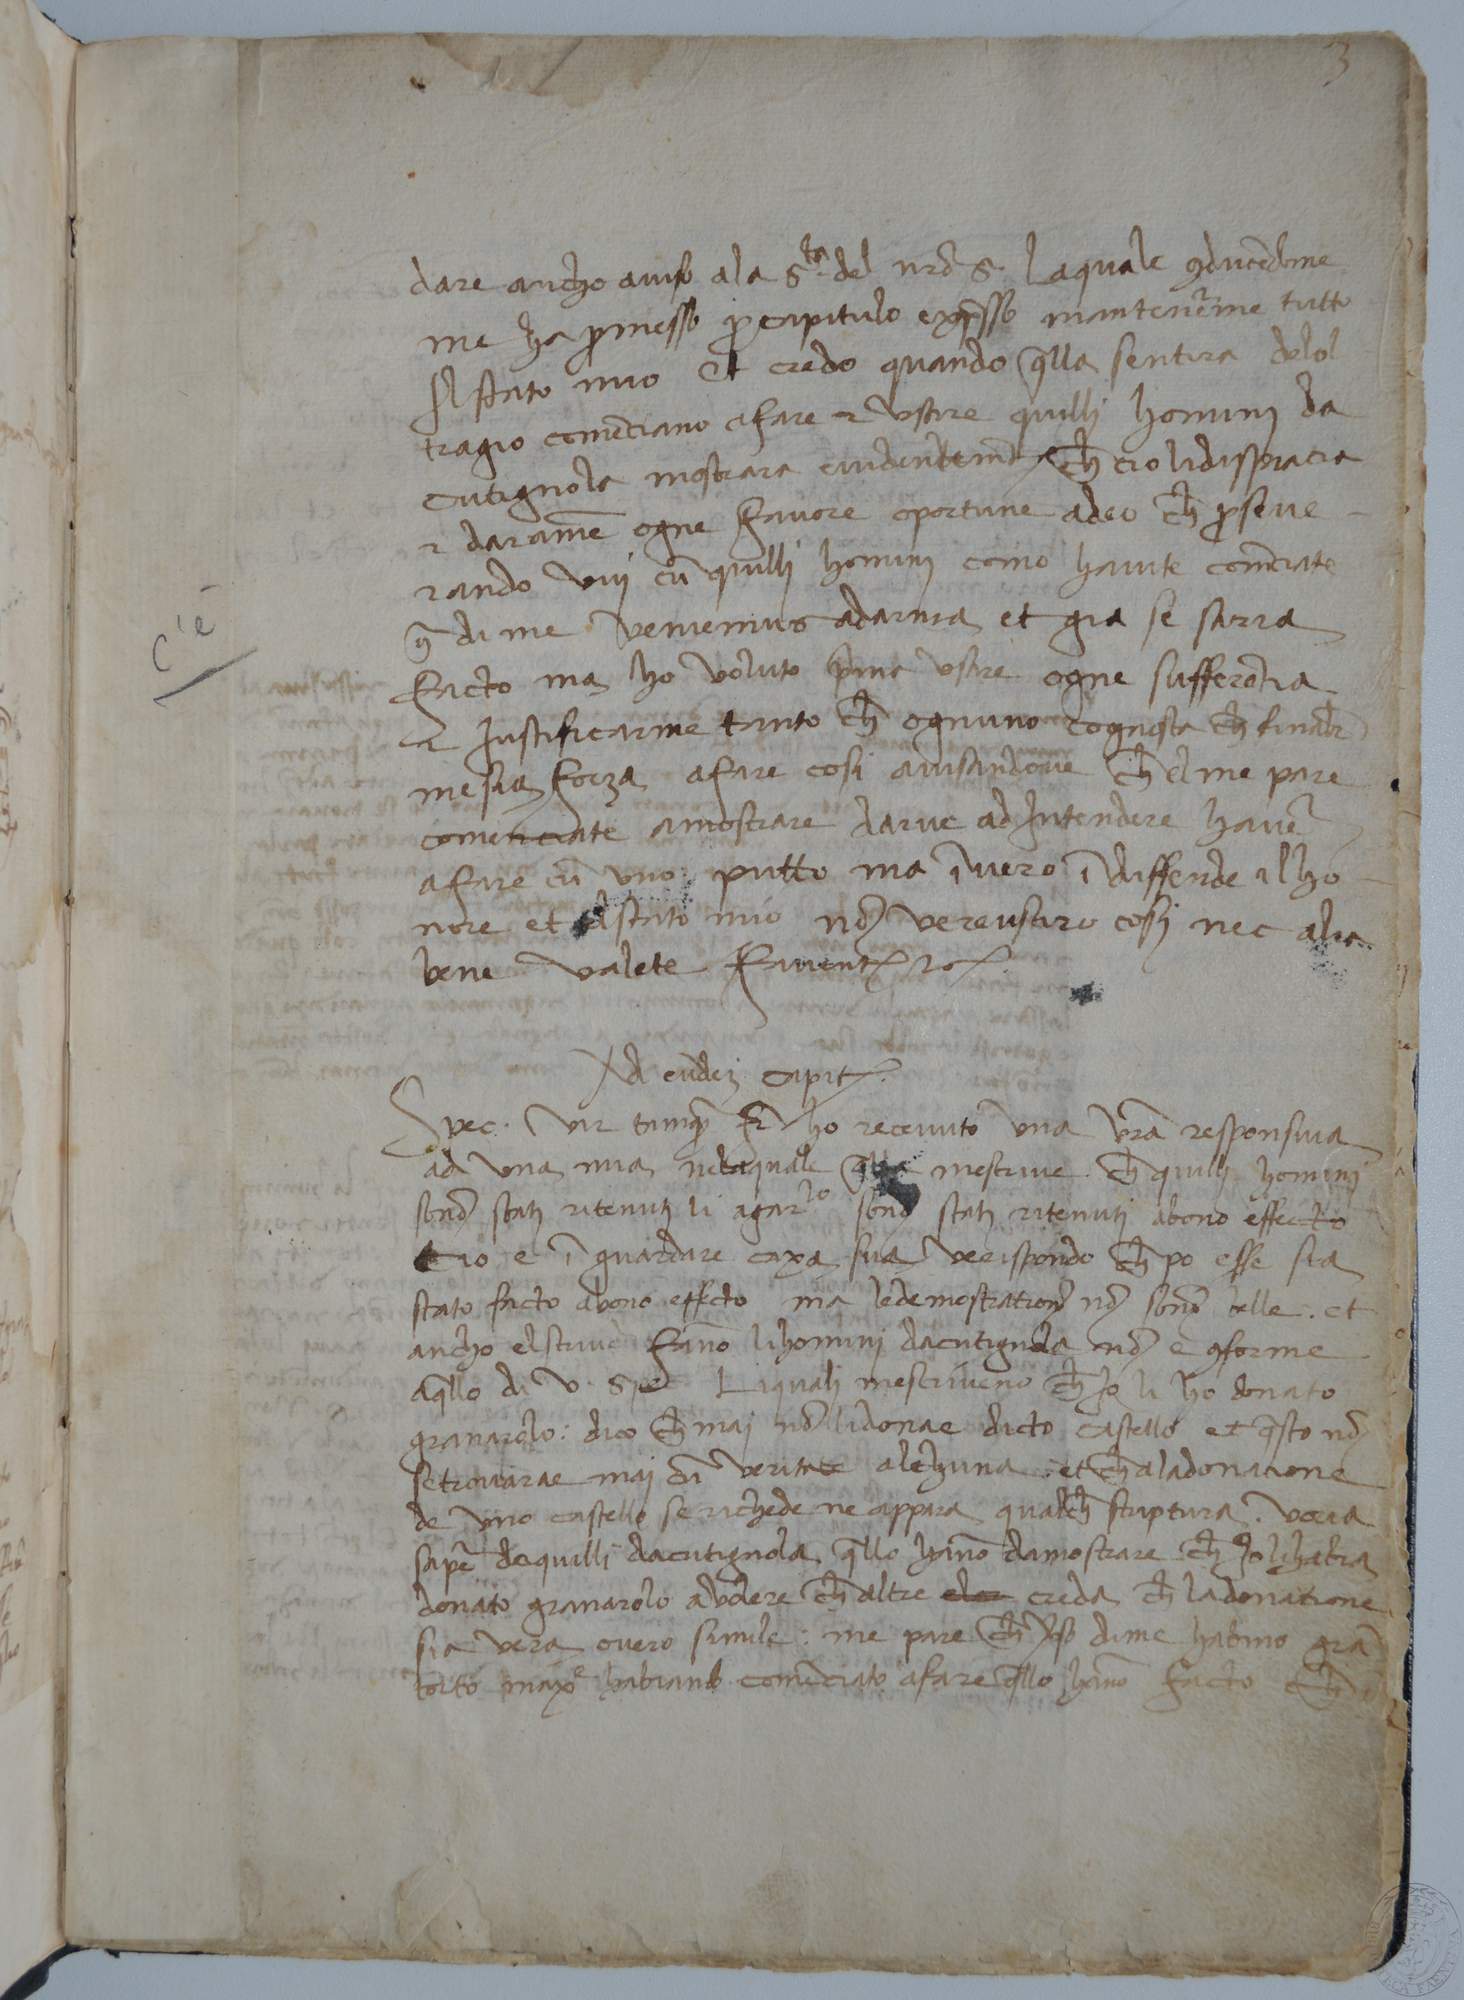 3
dare ancho aviso ala S.ta del nrō S. Laquale ꝯducēdome
me ha ꝓmesso ꝑ capitulo exp̄sso mantener̄me tutto
Il stato mio Et credo quando q̄lla sentira delol
tragio comēciano afare ⁊ usare quilli homini da
cutignola mostrara evidentem̄te ch̄ cio li dispiacia
⁊ daram̄e ogne favore oportune adeo ch̄ ꝑseve
rando vuj cū quilli homini como havite comēciate
ꝯ di me veniemus adarma et gia se saria
facto ma ho voluto p̄ma usare ogne sufferētia
⁊ Justificarme tanto ch̄ ognuno cognosca ch̄
me sia forza afare cosi avisandove ch̄ el me pare
comenciate amostrare darve ad Intendere haver̄
afare cū uno putto ma ī vero ī diffende il ho
nore et el stato mio nō ve reusciro cosi nec alia
bene valete Faventꝭ
Ad eūdeꝫ capitꝭ.
Spec. vir tamq̄ fr̄ ho recevuto una vrā responsiva
ad una mia nelaquale q̄lla me scrive ch̄ quilli homini
sonō stati ritenuti li a gar.lo sonō stati ritenuti abono effecto
cio e ī guardare caxa sua ve rispondo ch̄ po esse sia
stato facto abono effecto ma le demostrationi nō sonō belle. et
ancho el scrive fāno li homini dacutignola nō e ꝯforme
a q̄llo di v. Spec. Li quali me scriveno ch̄ Io li ho donato
granarolo: dico ch̄ mai nō li donae dicto castello et q̄sto nō
se trovarae maj cū veritate alchuna et ch̄ ala donatione
de uno castello se richede ne appara qualch̄ scriptura. voria
saper̄ de quilli dacutignola q̄llo hāno da mostrare ch̄ Io li habia
donato granarolo a volere ch̄ altre creda ch̄ la donatione
sia vera overo simile: me pare ch̄ v̄so di me habino grā
torto max.e habiando comēciato afare q̄llo hāno facto ch̄